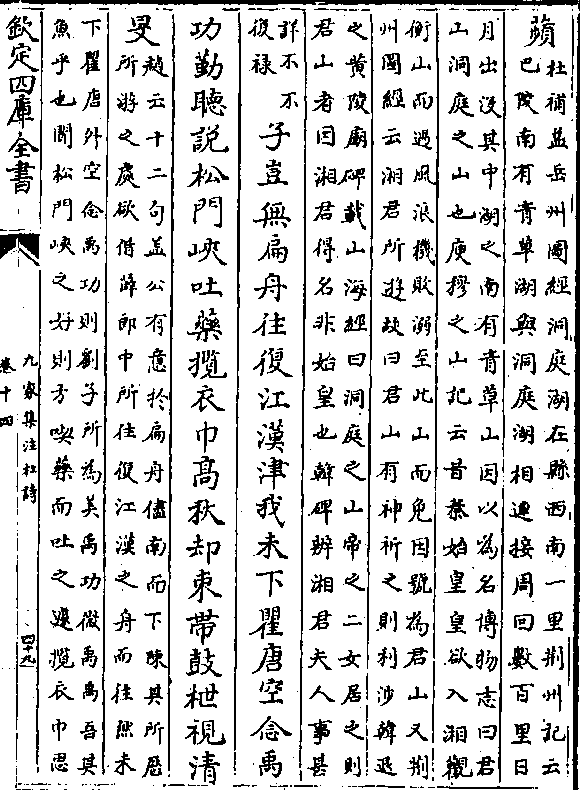 蘋
杜補盖岳州圖經洞庭湖在縣西南一里荆州記云
巴陵南有青草湖與洞庭湖相連接周回數百里日
月出没其中湖之南有青草山因以為名博物志曰君
山洞庭之山也庾穆之山記云昔秦始皇皇欲入湘觀
衡山而遇風浪機敗溺至此山而免因號為君山又荆
州圖經云湘君所遊故曰君山有神祈之則利涉韓退
之黄陵廟碑載山海經曰洞庭之山帝之二女居之則
君山者因湘君得名非始皇也韓碑辨湘君夫人事甚
詳不不
復禄
子豈無扁舟往復江漢津我未下瞿唐空念禹
功勤聽説松門峽吐藥攬衣巾髙秋却束帶鼓枻視清
旻
趙云十二句盖公有意於扁舟儘南而下陳其所歴
所游之處欲借薛郎中所往復江漢之舟而往然未
下瞿唐外空念禹功則劉子所為美禹功微禹禹吾其
魚乎也聞松門峽之好則方喫藥而吐之遽攬衣巾思
欽定四庫全書
九家集注杜詩
卷十四
四十九